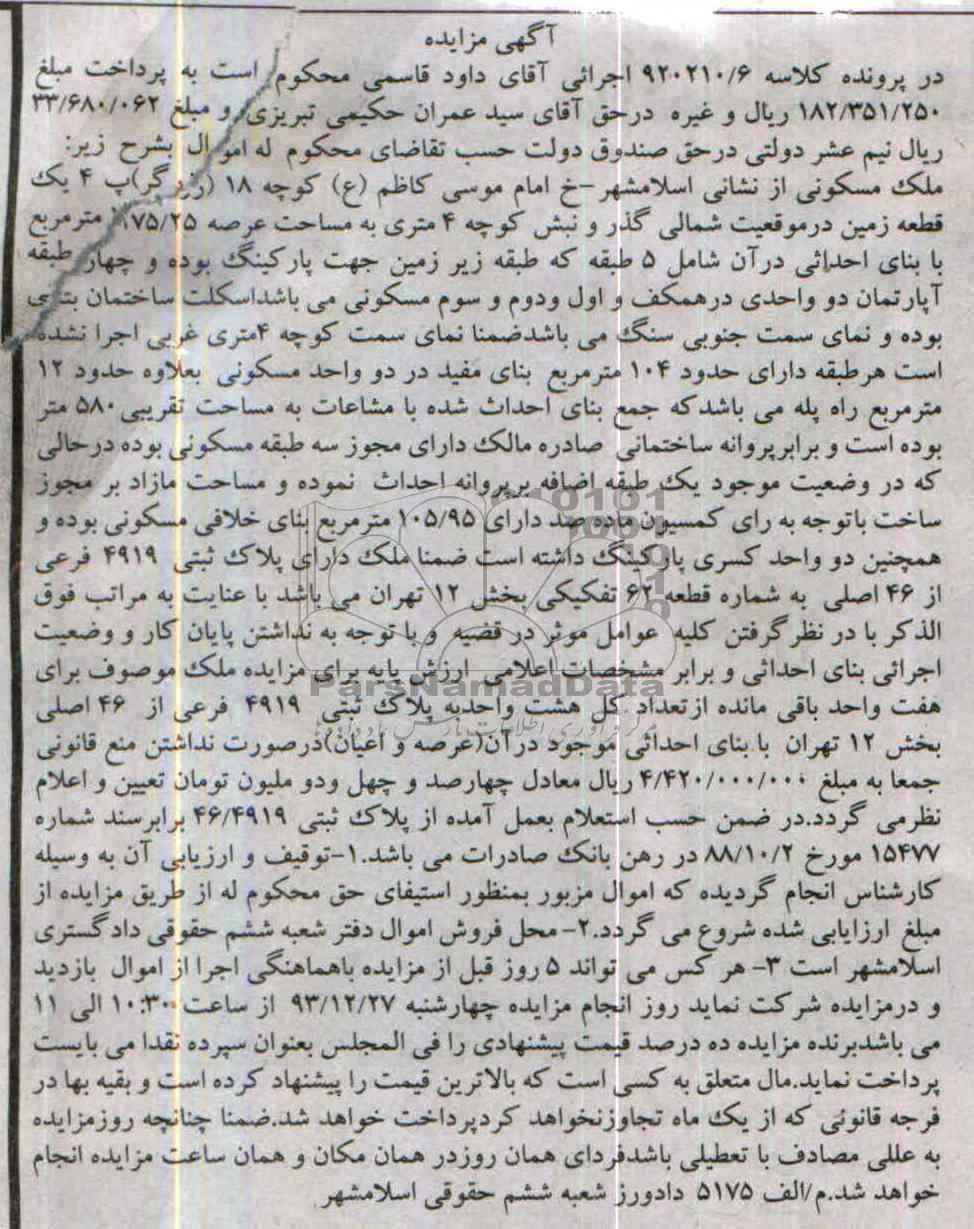 آگهی مزایده
در پرونده کلاسه ۹۲۰۲۱۰/۶ اجرائی آقای داود قاسمی محکوم است به پرداخت مبلغ
۱۸۲/۳۵۱/۲۵۰ ریال و غیره درحق آقای سید عمران حکیمی تبریزی و مبلغ ۳۳/۶۸۰/۰۶۲
ریال نیم عشر دولتی درحق صندوق دولت حسب تقاضای محکوم له اموال بشرح زیر:
ملک مسکونی از نشانی اسلامشهر-خ امام موسی کاظم (ع) کوچه ۱۸ (زرگر)پ ۴ یک
قطعه زمین درموقعیت شمالی گذر و نبش کوچه ۴ متری به مساحت عرصه ۱۷۵/۲۵ مترمربع
با بنای احداثی درآن شامل ۵ طبقه که طبقه زیر زمین جهت پارکینگ بوده و چهار طبقه
آپارتمان دو واحدی درهمکف و اول ودوم و سوم مسکونی می باشداسکلت ساختمان بتنی
بوده و نمای سمت جنوبی سنگ می باشدضمنا نمای سمت کوچه ۴متری غربی اجرا نشده
است هرطبقه دارای حدود ۱۰۴ مترمربع بنای مفید در دو واحد مسکونی بعلاوه حدود ۱۲
مترمربع راه پله می باشدکه جمع بنای احداث شده با مشاعات به مساحت تقریبی۵۸۰ متر
بوده است و برابرپروانه ساختمانی صادره مالک دارای مجوز سه طبقه مسکونی بوده درحالی
که در وضعیت موجود یک طبقه اضافه برپروانه احداث نموده و مساحت مازاد بر مجوز
ساخت باتوجه به رای کمسیون ماده صد دارای ۱۰۵/۹۵ مترمربع بنای خلافی مسکونی بوده و
همچنین دو واحد کسری پارکینگ داشته است ضمنا ملک دارای پلاک ثبتی ۴۹۱۹ فرعی
از ۴۶ اصلی به شماره قطعه ۶۲ تفکیکی بخش ۱۲ تهران می باشد با عنایت به مراتب فوق
الذکر با در نظرگرفتن کلیه عوامل موثر در قضیه و با توجه به نداشتن پایان کار و وضعیت
اجرائی بنای احداثی و برابر مشخصات اعلامی ارزش پایه برای مزایده ملک موصوف برای
ParsNamadData
هفت واحد باقی مانده ازتعداد کل هشت واحدبه پلاک ثبتی ۴۹۱۹ فرعی از ۴۶ اصلی
بخش ۱۲ تهران با بنای احداثی موجود درآن(عرصه و اعیان)درصورت نداشتن منع قانونی
جمعا به مبلغ ۴/۴۲۰/۰۰۰/۰۰۰ ریال معادل چهارصد و چهل ودو ملیون تومان تعیین و اعلام
نظرمی گردد.در ضمن حسب استعلام بعمل آمده از پلاک ثبتی ۴۶/۴۹۱۹ برابرسند شماره
۱۵۴۷۷ مورخ ۸۸/۱۰/۲ در رهن بانک صادرات می باشد.۱-توقیف و ارزیابی آن به وسیله
کارشناس انجام گردیده که اموال مزبور بمنظور استیفای حق محکوم له از طریق مزایده از
مبلغ ارزایابی شده شروع می گردد.۲-محل فروش اموال دفتر شعبه ششم حقوقی دادگستری
اسلامشهر است ۳- هر کس می تواند ۵ روز قبل از مزایده باهماهنگی اجرا از اموال بازدید
و درمزایده شرکت نماید روز انجام مزایده چهارشنبه ۹۳/۱۲/۲۷ از ساعت ۱۰:۳۰ الی ۱۱
می باشدبرنده مزایده ده درصد قیمت پیشنهادی را فی المجلس بعنوان سپرده نقدا می بایست
پرداخت نماید.مال متعلق به کسی است که بالاترین قیمت را پیشنهاد کرده است و بقیه بها در
فرجه قانونی که از یک ماه تجاوزنخواهد کردپرداخت خواهد شد.ضمنا چنانچه روزمزایده
به عللی مصادف با تعطیلی باشدفردای همان روزدر همان مکان و همان ساعت مزایده انجام
خواهد شد.م/الف ۵۱۷۵ دادورز شعبه ششم حقوقی اسلامشهر